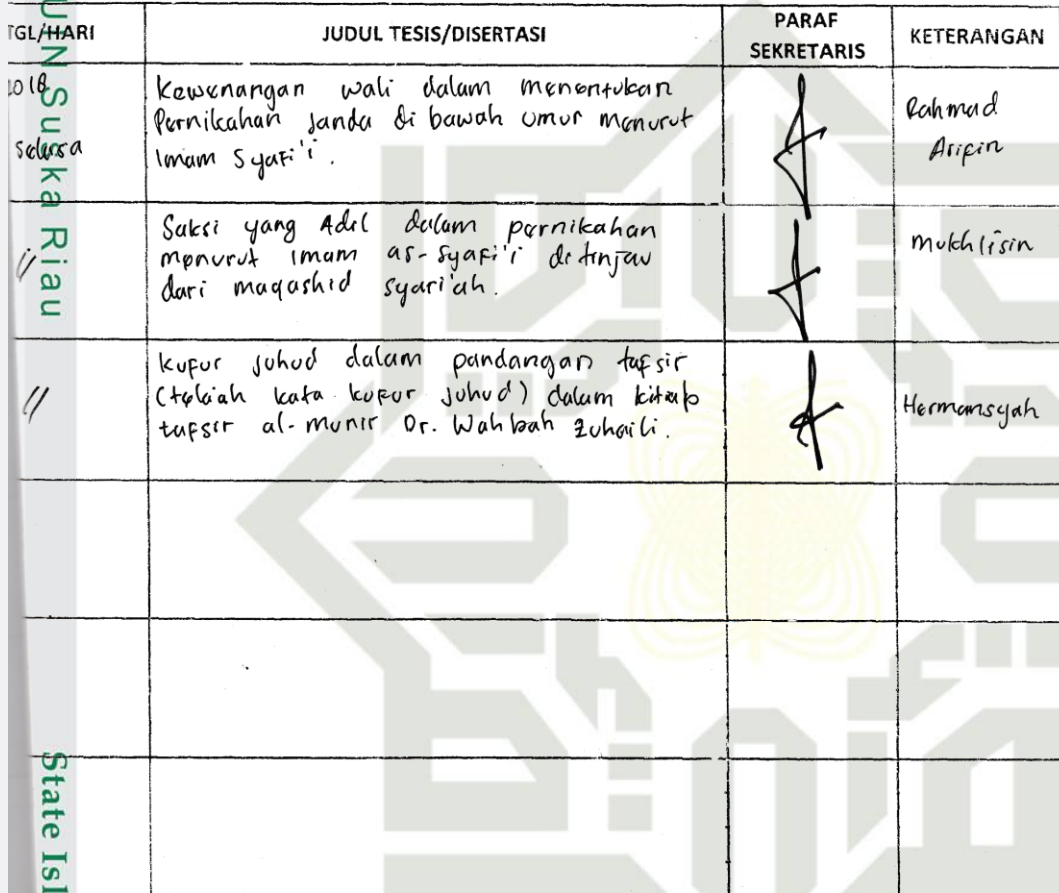 TGL/HARI JUDUL TESIS/DISERTASI PARAF SEKRETARIS KETERANGAN
2018
Selasa
Kewenangan wali dalam menentukan
Pernikahan Janda di bawah umur menurut
Imam Syafi'i.
Rahmad
Arifin
"
Saksi yang Adil dalam pernikahan
menurut imam as-syafi'i ditinjau
dari maqashid syari'ah.
Mukhlisin
"
Kufur juhud dalam pandangan tafsir
(telaah kata kufur juhud) dalam kitab
tafsir al-munir Dr. Wahbah Zuhaili.
Hermansyah
UN Suska Riau
State Isl